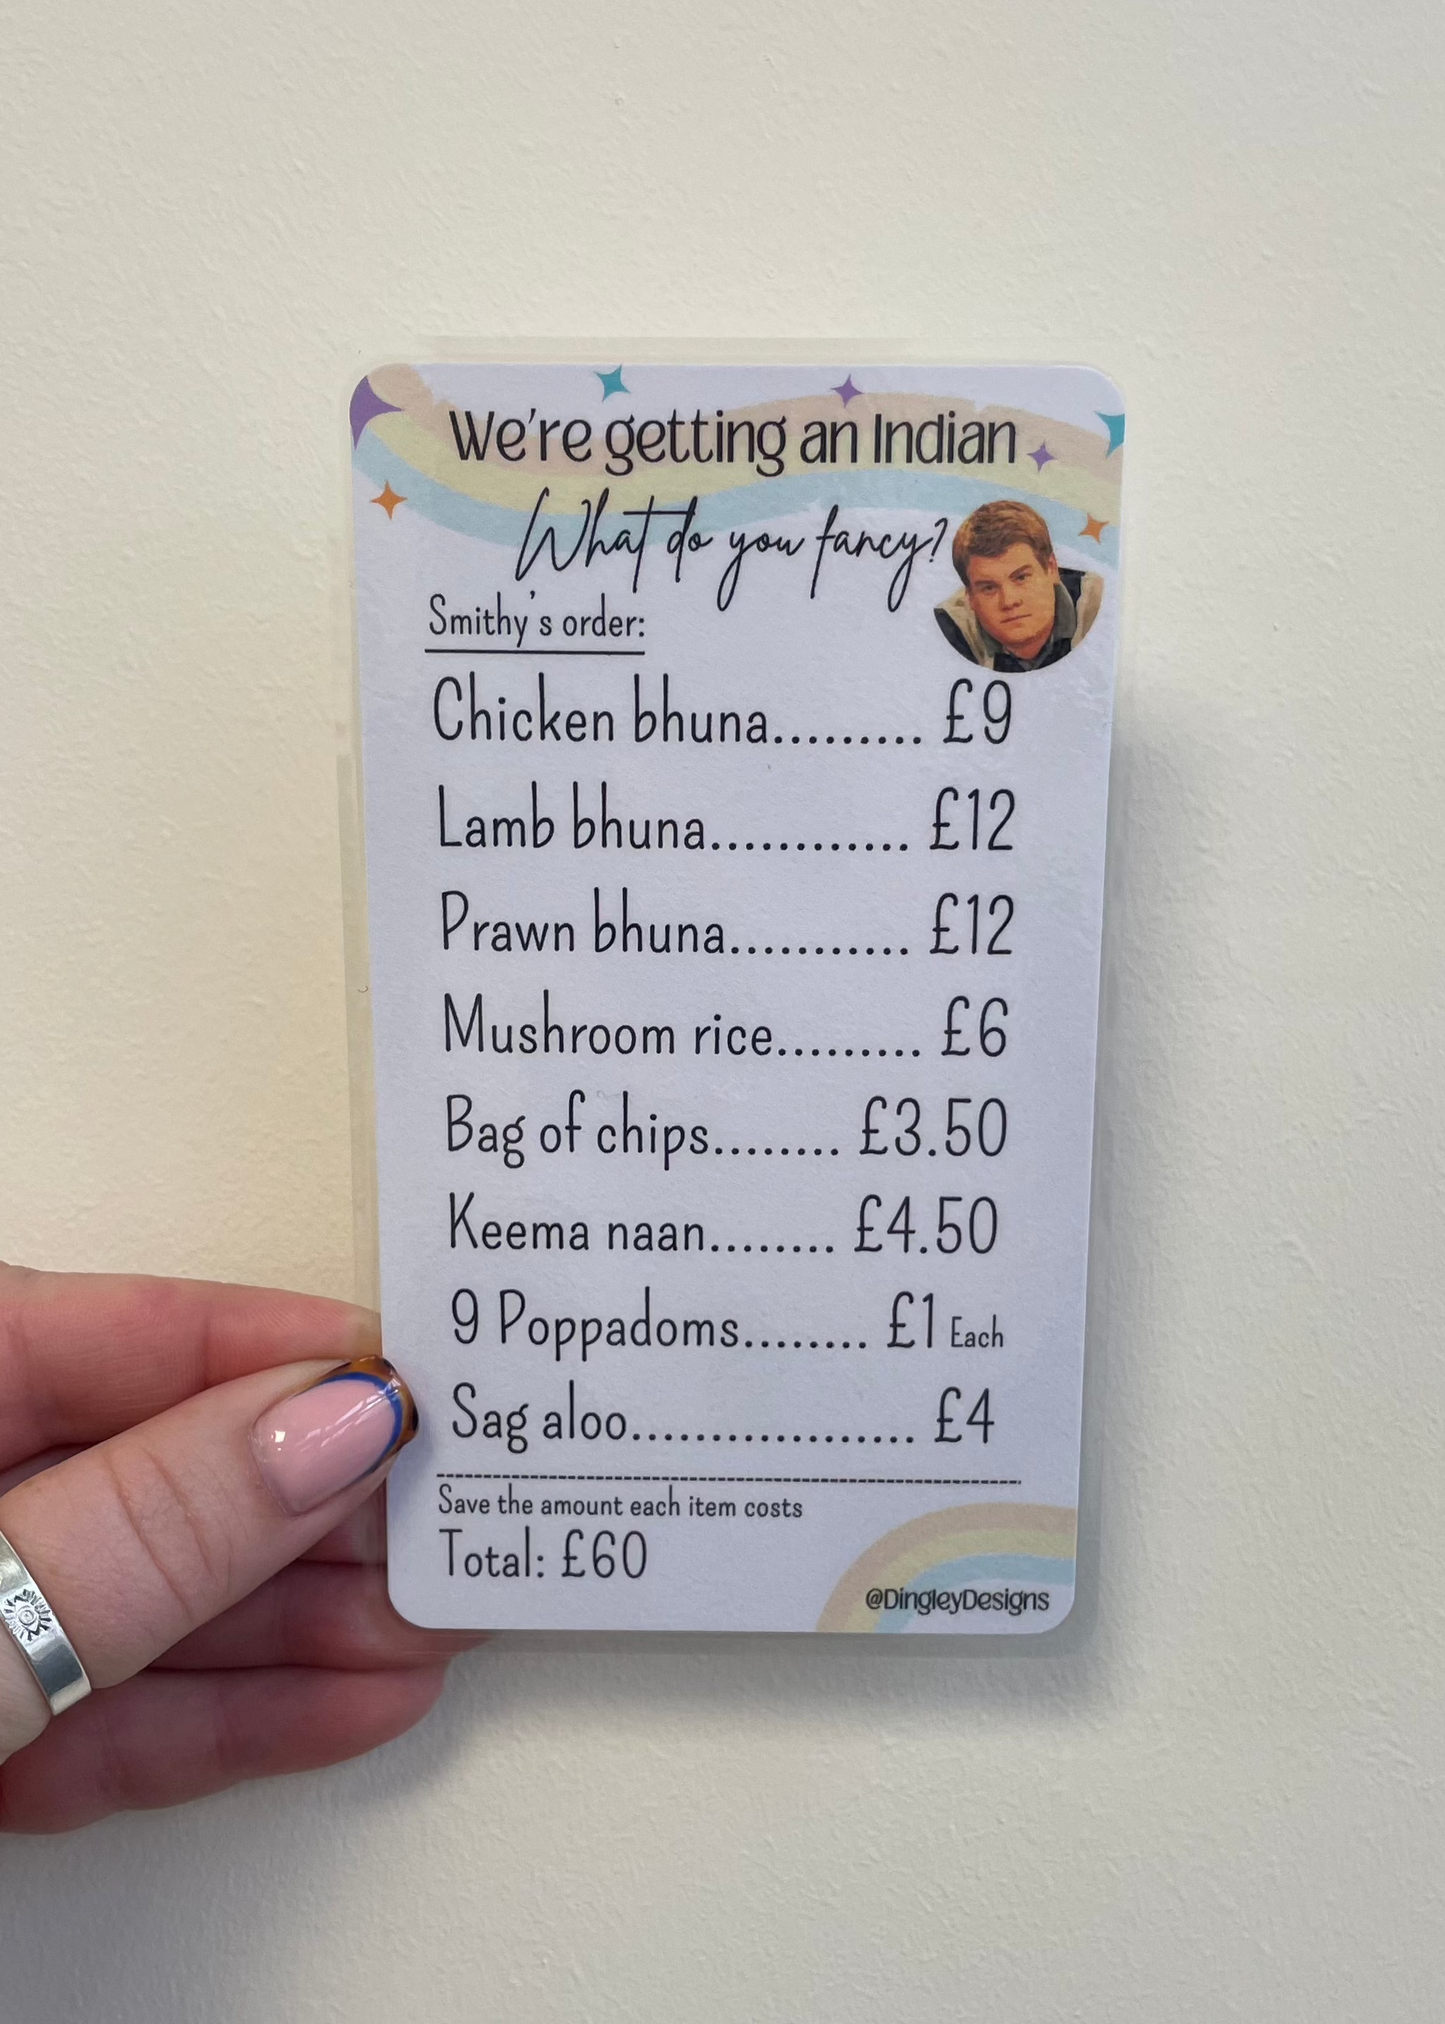 We're getting an Indian
What do you fancy?
Smithy's order:
Chicken bhuna......... £9
Lamb bhuna............ £12
Prawn bhuna........... £12
Mushroom rice......... £6
Bag of chips........ £3.50
Keema naan........ £4.50
9 Poppadoms........ £1 Each
Sag aloo................... £4
Save the amount each item costs
Total: £60
@DingleyDesigns